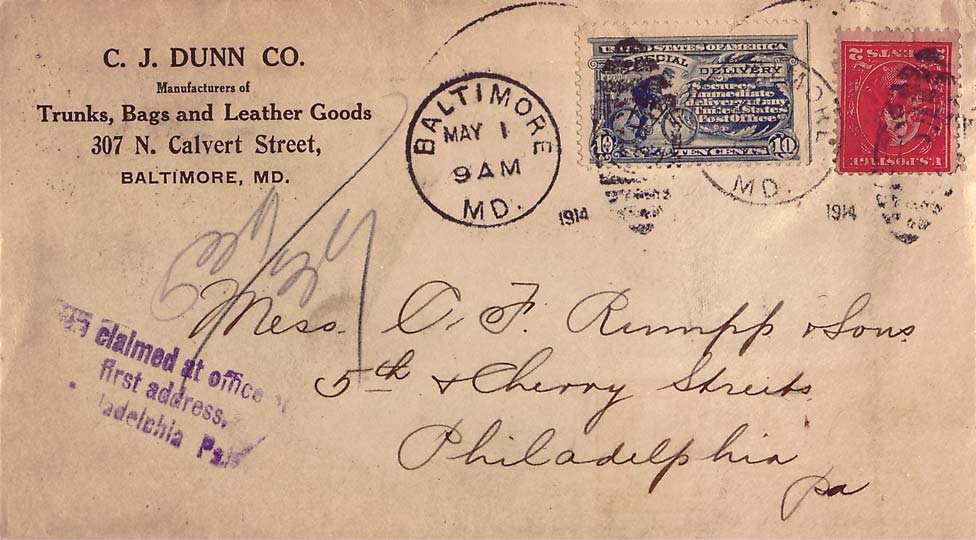 C. J. DUNN CO.
Manufacturers of
Trunks, Bags and Leather Goods
307 N. Calvert Street,
BALTIMORE, MD.
BALTIMORE
MAY 1
9 AM
MD.
1914
UNITED STATES OF AMERICA
SPECIAL DELIVERY
Secures
immediate
delivery at any
United States
Post Office
10 TEN CENTS 10
MORE
MD.
1914
U.S. POSTAGE
2 CENTS 2
Mess. C. F. Rumpp & Sons
5th & Cherry Streets
Philadelphia
Pa
claimed at office of
first address,
adelphia Pa.